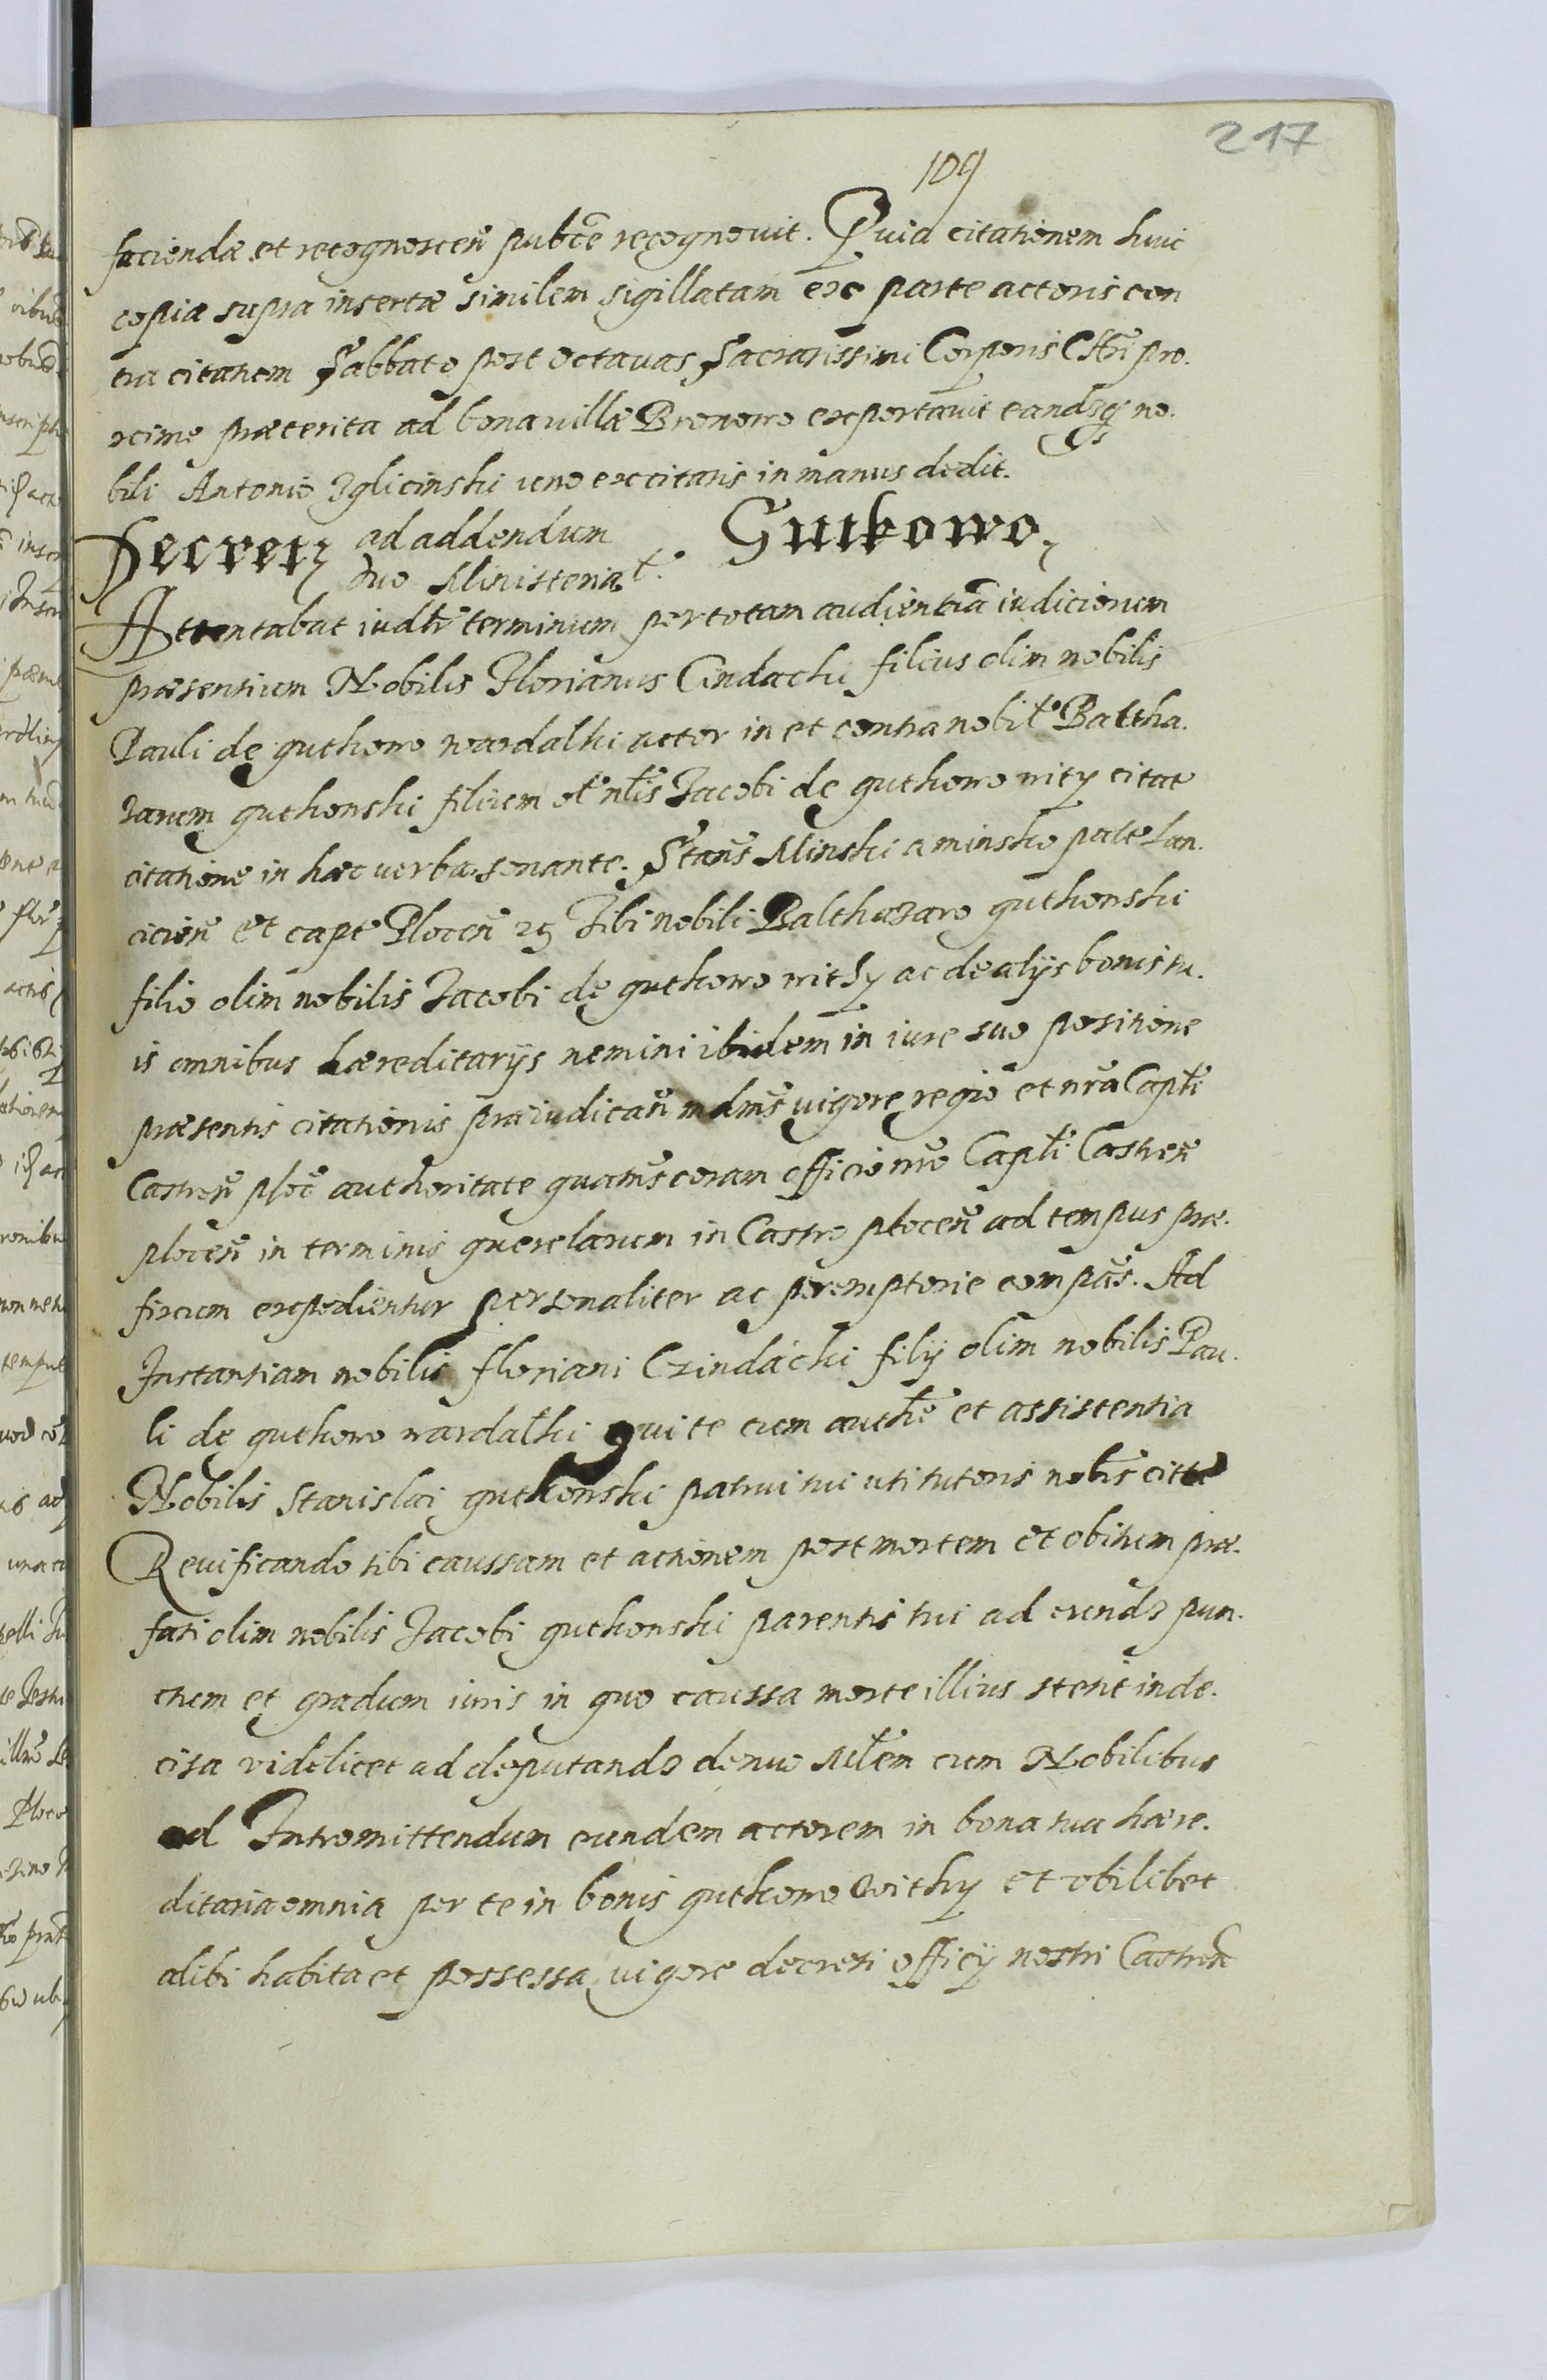 217
109
faciendæ et recognoscen̄ pub̄ce recognovit. Quia citationem huic
copiæ supra insertæ similem sigillatam ex parte actoris con
tra citatum Sabbato post octauas Sacratissimi Corporis Chri pro.
xime præterita ad bona villæ Bronowo exportauit eandq no.
bili Antonio Iglicinski uno ex citatis in manus dedit.
Decret ad addendum Gutkowo
duo Ministerial.
Attentabat iudr terminum per totam audientiā iudiciorum
præsentium Nobilis Florianus Cindacki filius olim nobilis
Pauli de guthowo wardalki actor in et contra nobil Baltha.
zarem guthowski filium ol nlis Jacobi de guthowo wity citat
citatione in hæc verba sonante. Stans Minski a minsko palt Lan.
cicien̄ et capt Plocen̄ Tibi nobili Balthazaro guthowski
filio olim nobilis Jacobi de guthowo withy ac de alijs bonis tu.
is omnibus hæreditarijs nemini ibidem in iure suo positione
præsentis citationis præiudican̄ mdms vigore regio et nra Capli
Castren̄ ploc authoritate quatms coram officio nro Capli Castren̄
plocen̄ in terminis querelarum in Castro plocen̄ ad tempus præ.
fixum expedientur personaliter ac peremptorie compās. Ad
Instantiam nobilis floriani Czindacki filij olim nobilis Pau.
li de guthowo wardalki qui te cum authē et assistentia
Nobilis Stanislai guthowski patrui tui uti tutoris nobis citt
Reuificando tibi caussam et actionem post mortem et obitum præ.
fati olim nobilis Jacobi guthowski parentis tui ad eund pun.
ctum et gradum iuris in quo caussa morte illius stetit inde.
cisa videlicet ad deputand denuo Mlem cum Nobilibus
ad Intromittendum eundem actorem in bona tua hære.
ditaria omnia per te in bonis guthowo withy et vbilibet
alibi habita et possessa vigore decreti officij nostri Castren̄